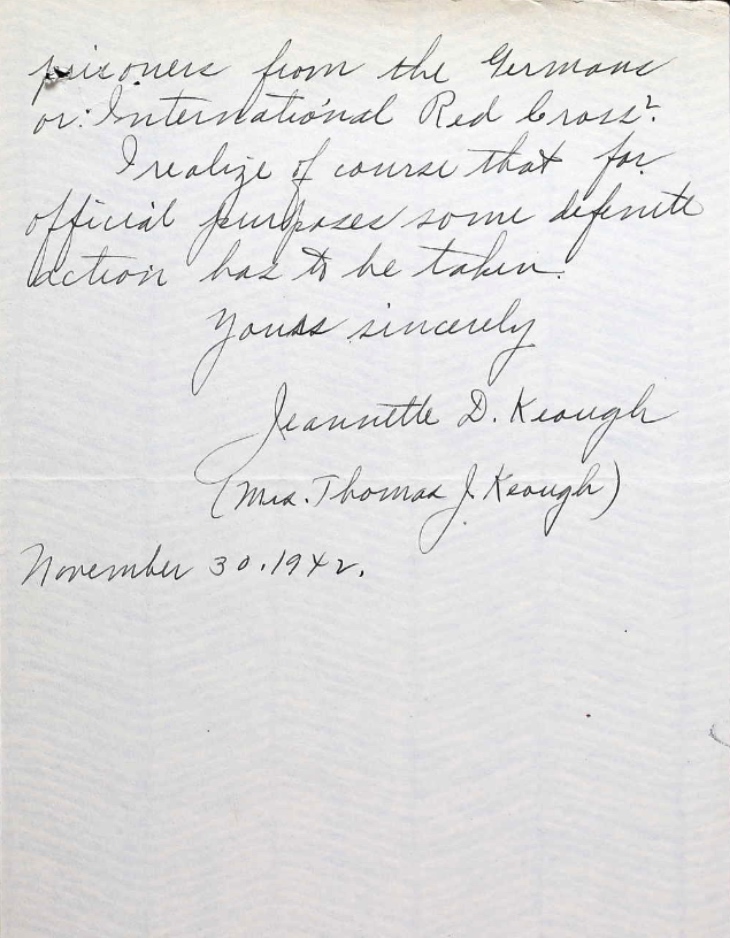 prisoners from the Germans
or International Red Cross?
I realize of course that for
official purposes some definite
action has to be taken.
Yours sincerely
Jeannette D. Keough
(Mrs. Thomas J. Keough)
November 30. 1942.